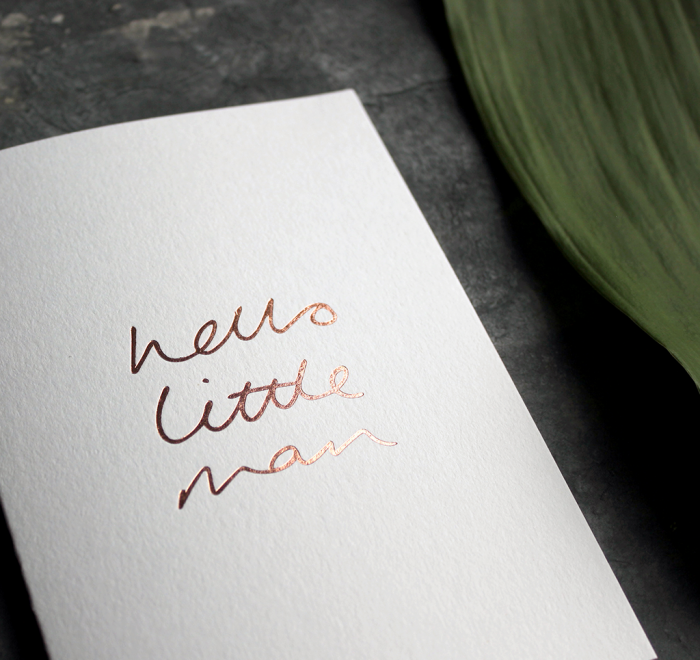 hello
little
man